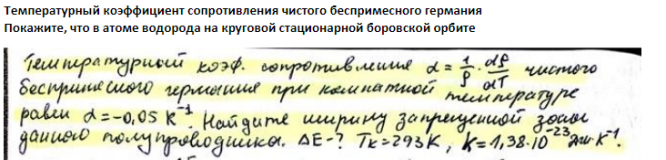 Температурный коэффициент сопротивления чистого беспримесного германия
Покажите, что в атоме водорода на круговой стационарной боровской орбите
Температурный коэф. сопротивления α = 1/ρ · dρ/dT чистого
беспримесного германия при комнатной температуре
равен α = -0,05 K⁻¹. Найдите ширину запрещенной зоны
данного полупроводника. ΔE-? Tк = 293K, k = 1,38·10⁻²³ Дж·K⁻¹.